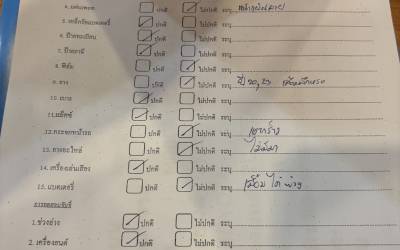 4. แผ่นเพลท ปกติ ไม่ปกติ ระบุ
5. เหล็กรัดแบตเตอรี่ ปกติ ไม่ปกติ ระบุ
6. ป้ายทะเบียน ปกติ ไม่ปกติ ระบุ
7. ป้ายภาษี ปกติ ไม่ปกติ ระบุ
8. ฟิล์ม ปกติ ไม่ปกติ ระบุ
9. ยาง ปกติ ไม่ปกติ ระบุ ปี 20, 23
10. เบาะ ปกติ ไม่ปกติ ระบุ
11. แม็กซ์ ปกติ ไม่ปกติ ระบุ
12. กระจกหน้ารถ ปกติ ไม่ปกติ ระบุ
13. ยางอะไหล่ ปกติ ไม่ปกติ ระบุ ไม่มีมา
14. เครื่องเล่นเสียง ปกติ ไม่ปกติ ระบุ
15. แบตเตอรี่ ปกติ ไม่ปกติ ระบุ
การทดสอบขับขี่
1. ช่วงล่าง ปกติ ไม่ปกติ ระบุ
2. เครื่องยนต์ ปกติ ไม่ปกติ ระบุ